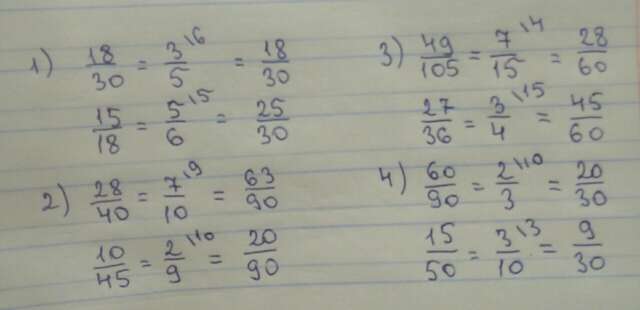 1) 18/30 = 3\6/5 = 18/30
15/18 = 5\5/6 = 25/30
2) 28/40 = 7\9/10 = 63/90
10/45 = 2\10/9 = 20/90
3) 49/105 = 7\4/15 = 28/60
27/36 = 3\15/4 = 45/60
4) 60/90 = 2\10/3 = 20/30
15/50 = 3\3/10 = 9/30